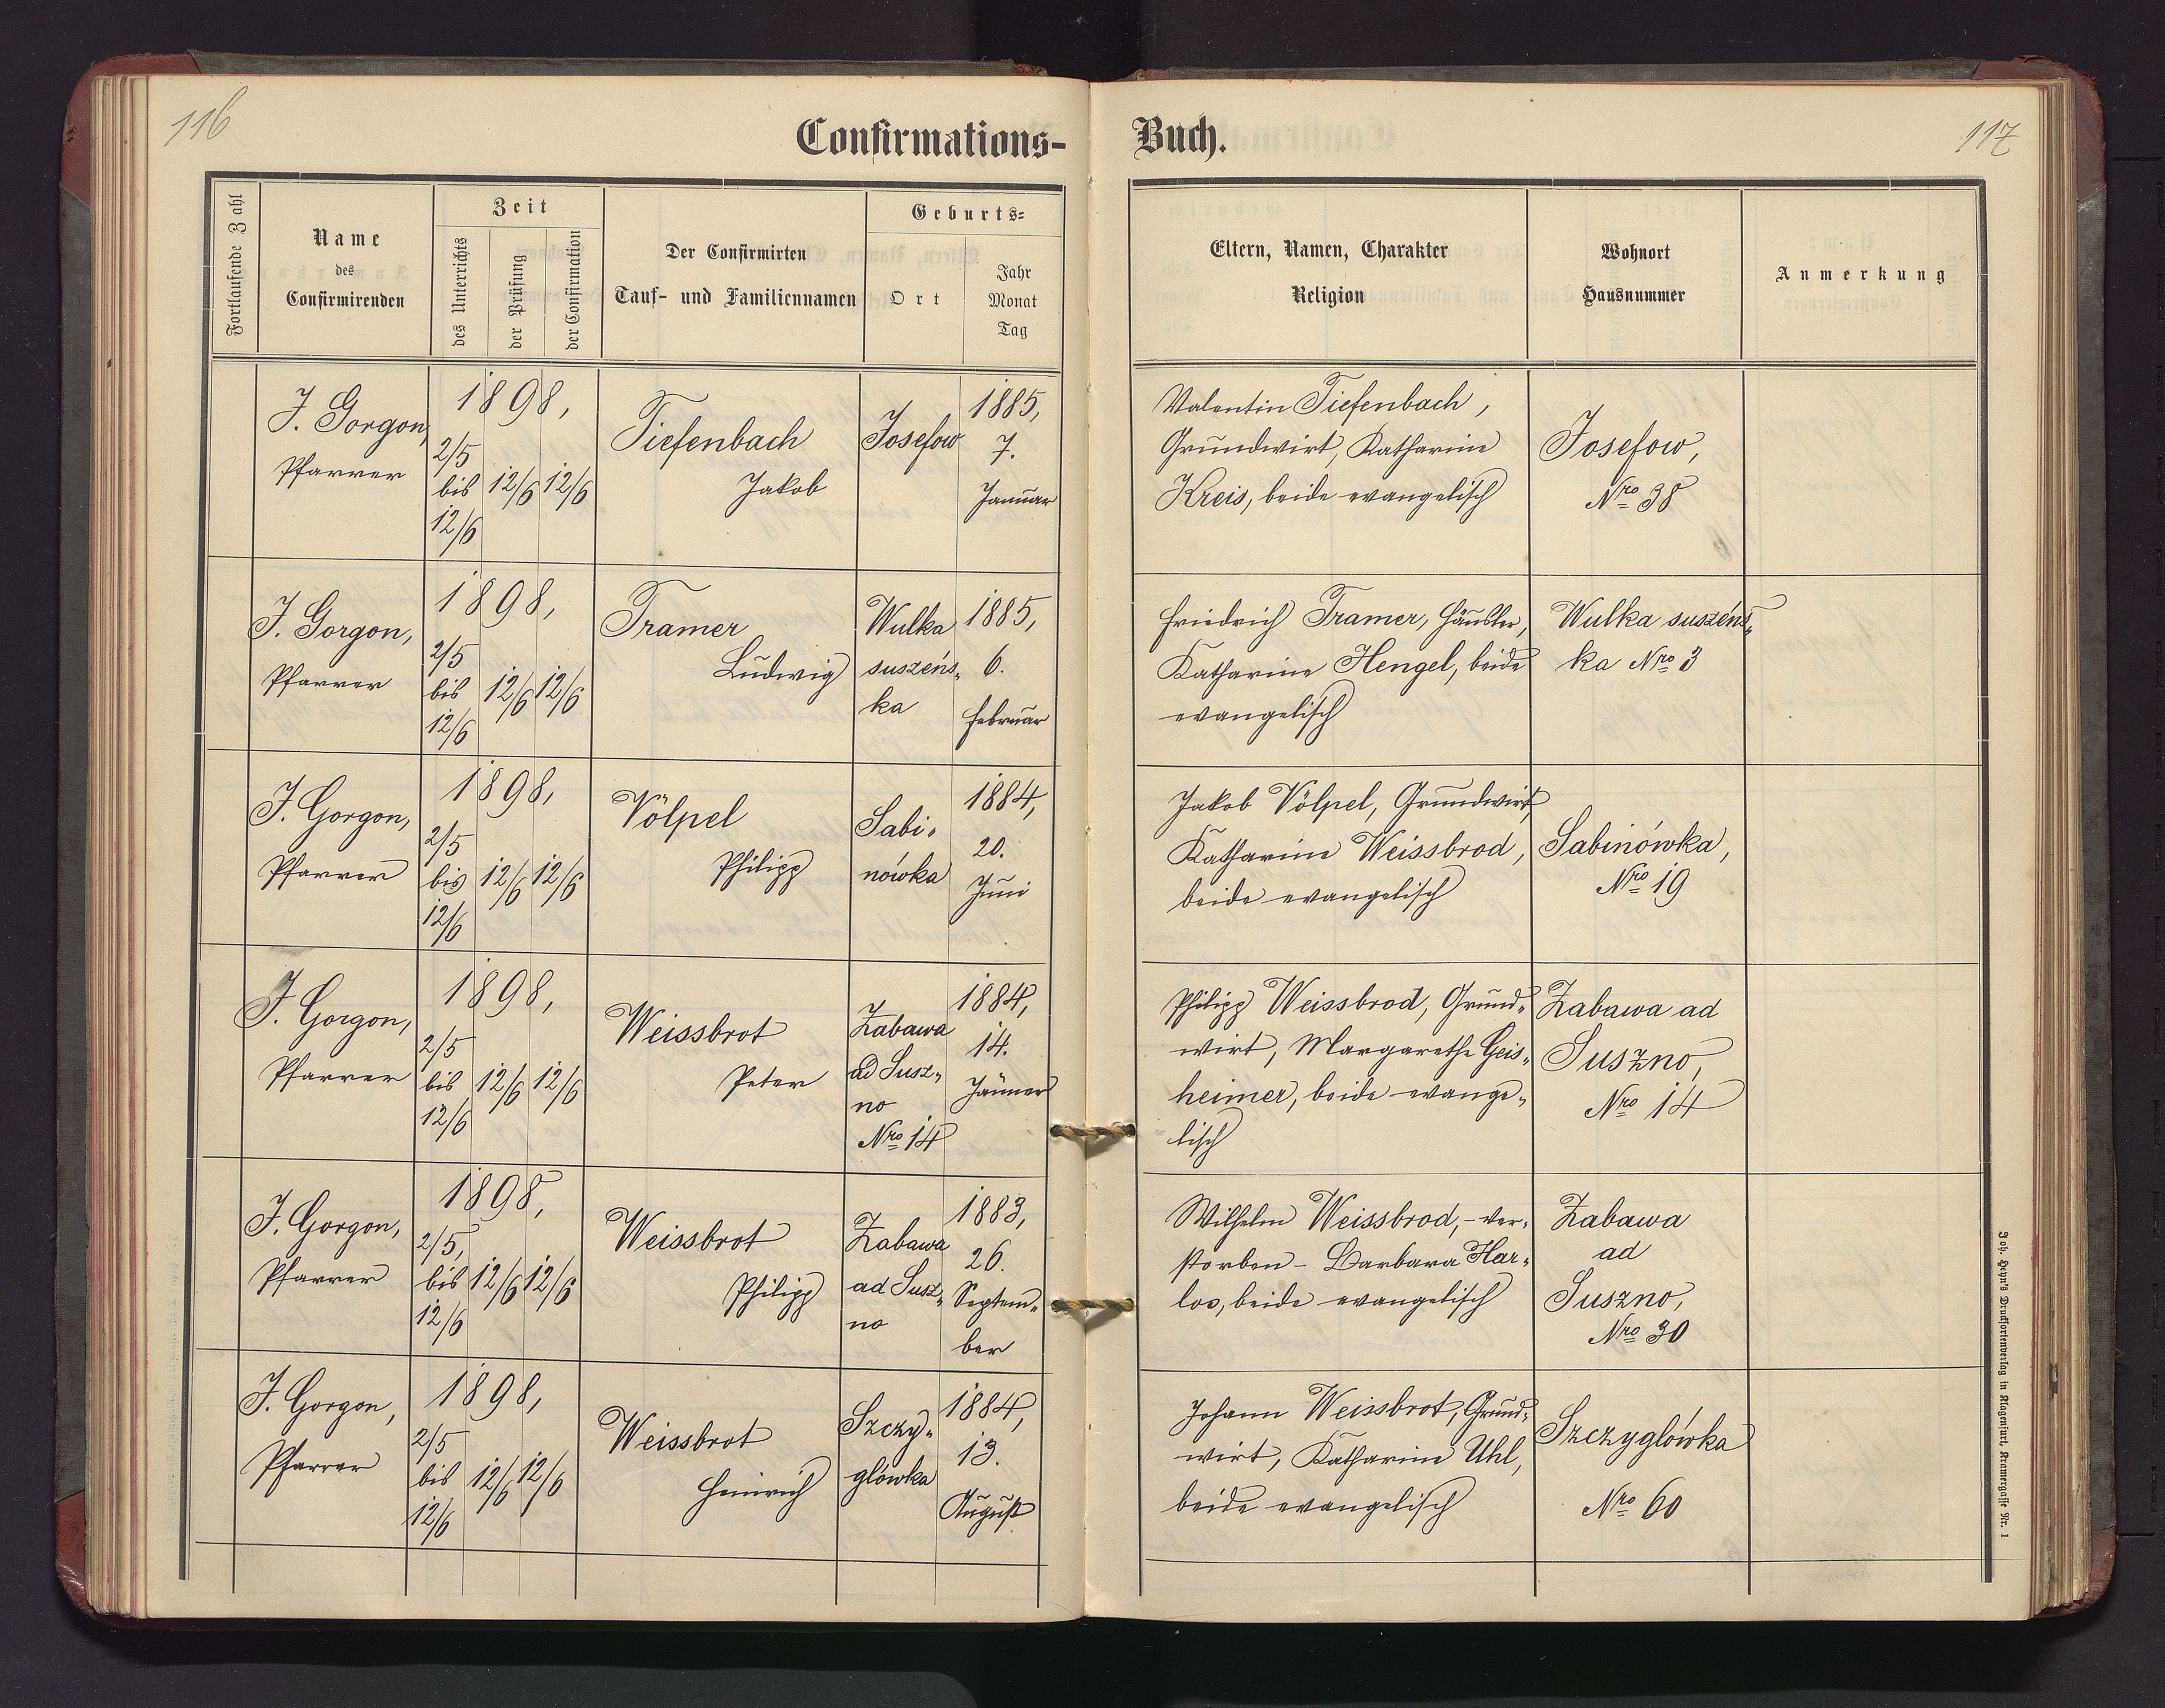 116
Confirmations-
Buch.
117
Fortlaufende Zahl
Name
des
Confirmirenden
Zeit
des Unterrichts
der Prüfung
der Confirmation
Der Confirmirten
Tauf- und Familiennamen
Geburts-
Ort
Jahr
Monat
Tag
Eltern, Namen, Charakter
Religion
Wohnort
Hausnummer
Anmerkung
J. Gorgon,
Pfarrer
1898,
2/5
bis
12/6
12/6
12/6
Tiefenbach
Jakob
Josefow
1885,
7.
Januar
Valentin Tiefenbach,
Grundwirt, Katharine
Kreis, beide evangelisch
Josefow,
Nro 38
J. Gorgon,
Pfarrer
1898,
2/5
bis
12/6
12/6
12/6
Tramer
Ludwig
Wulka
suszeńs„
ka
1885,
6.
Februar
Friedrich Tramer, Häusler,
Katharine Hengel, beide
evangelisch
Wulka suszeńs„
ka Nro 3
J. Gorgon,
Pfarrer
1898,
2/5
bis
12/6
12/6
12/6
Völpel
Philipp
Sabi„
nówka
1884,
20.
Juni
Jakob Völpel, Grundwirt,
Katharine Weissbrod,
beide evangelisch
Sabinówka,
Nro 19
J. Gorgon,
Pfarrer
1898,
2/5
bis
12/6
12/6
12/6
Weissbrot
Peter
Zabawa
ad Susz„
no
Nro 14
1884,
14.
Jänner
Philipp Weissbrod, Grund„
wirt, Margarethe Geis„
heimer, beide evange„
lisch
Zabawa ad
Suszno,
Nro 14
J. Gorgon,
Pfarrer
1898,
2/5,
bis
12/6
12/6
12/6
Weissbrot
Philipp
Zabawa
ad Susz„
no
1883,
26.
Septem„
ber
Wilhelm Weissbrod, – ver„
storben – Barbara Har„
los, beide evangelisch
Zabawa
ad
Suszno,
Nro 30
J. Gorgon,
Pfarrer
1898,
2/5
bis
12/6
12/6
12/6
Weissbrot
Heinrich
Szczy„
glówka
1884,
13.
August
Johann Weissbrot, Grund„
wirt, Katharine Uhl,
beide evangelisch
Szczyglówka
Nro 60
Joh. Heyn's Drucksortenverlag in Klagenfurt, Kramergasse Nr. 1